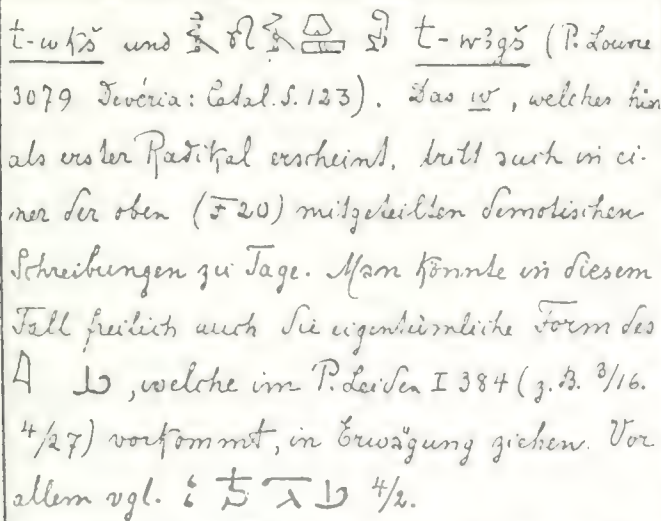 t-wkš und t-wꜣgš (P. Louvre
3079 Devéria: Catal. S. 123). Das w, welches hier
als erster Radikal erscheint, tritt auch in ei-
ner der oben (F 20) mitgeteilten demotischen
Schreibungen zu Tage. Man könnte in diesem
Fall freilich auch die eigentümliche Form des
, welche im P. Leiden I 384 (z. B. 3/16.
4/27) vorkommt, in Erwägung ziehen. Vor
allem vgl. 4/2.